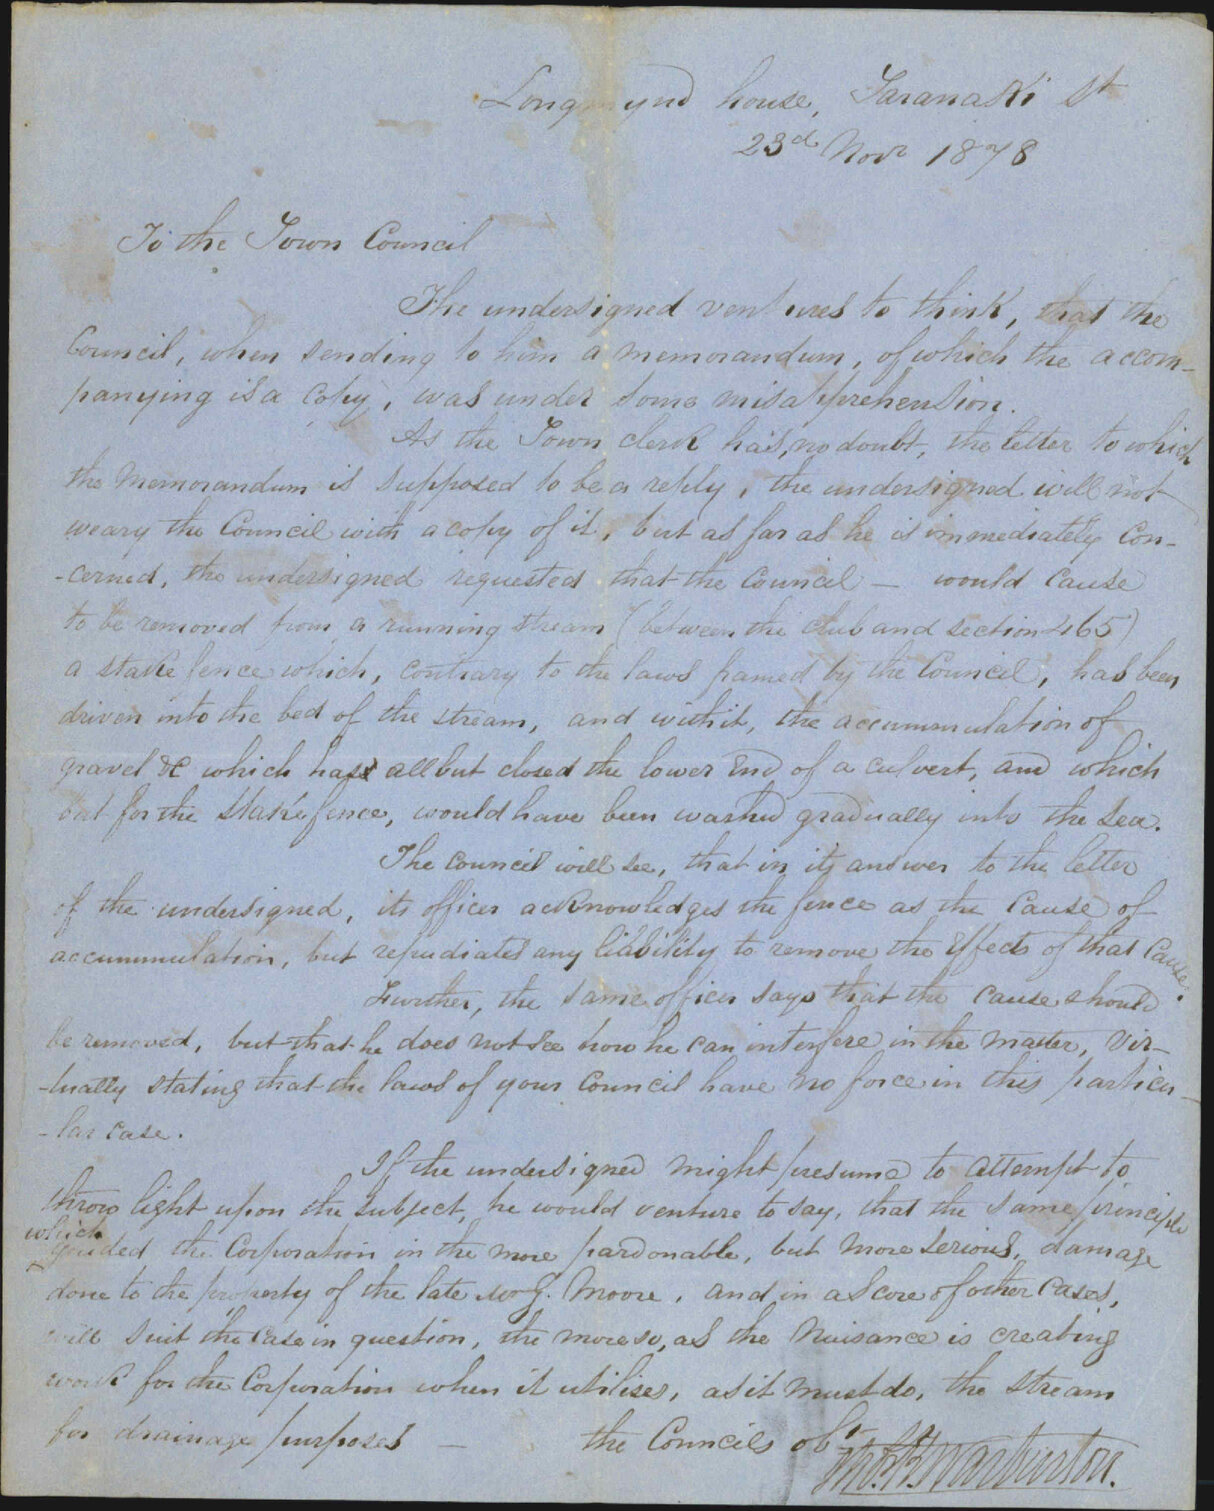 Longmynd house, Taranaki St
23d Novr 1878
To the Town Council
The undersigned ventures to think, that the
Council, when sending to him a memorandum, of which the accom-
panying is a copy, was under some misapprehension.
As the Town clerk has, no doubt, the letter to which
the Memorandum is supposed to be a reply, the undersigned will not
weary the Council with a copy of it, but as far as he is immediately con-
-cerned, the undersigned requested that the Council — would cause
to be removed from a running stream (between the club and section 465)
a stake fence which, contrary to the laws framed by the Council, has been
driven into the bed of the stream, and with it, the accummulation of
gravel &c which has all but closed the lower end of a culvert, and which
but for the stake fence, would have been washed gradually into the sea.
The Council will see, that in its answer to the letter
of the undersigned, its officer acknowledges the fence as the cause of
accummulation, but repudiates any liability to remove the effects of that cause.
Further, the same officer says that the cause should
be removed, but that he does not see how he can interfere in the matter, vir-
-tually stating that the laws of your Council have no force in this particu-
-lar case.
If the undersigned might presume to attempt to
throw light upon the subject, he would venture to say, that the same principle
which guided the Corporation in the more pardonable, but more serious, damage
done to the property of the late Mr G. Moore, and in a score of other cases,
will suit the case in question, the more so, as the Nuisance is creating
work for the Corporation when it utilises, as it must do, the stream
for drainage purposes — the Councils obt
Thos. B. Warburton.